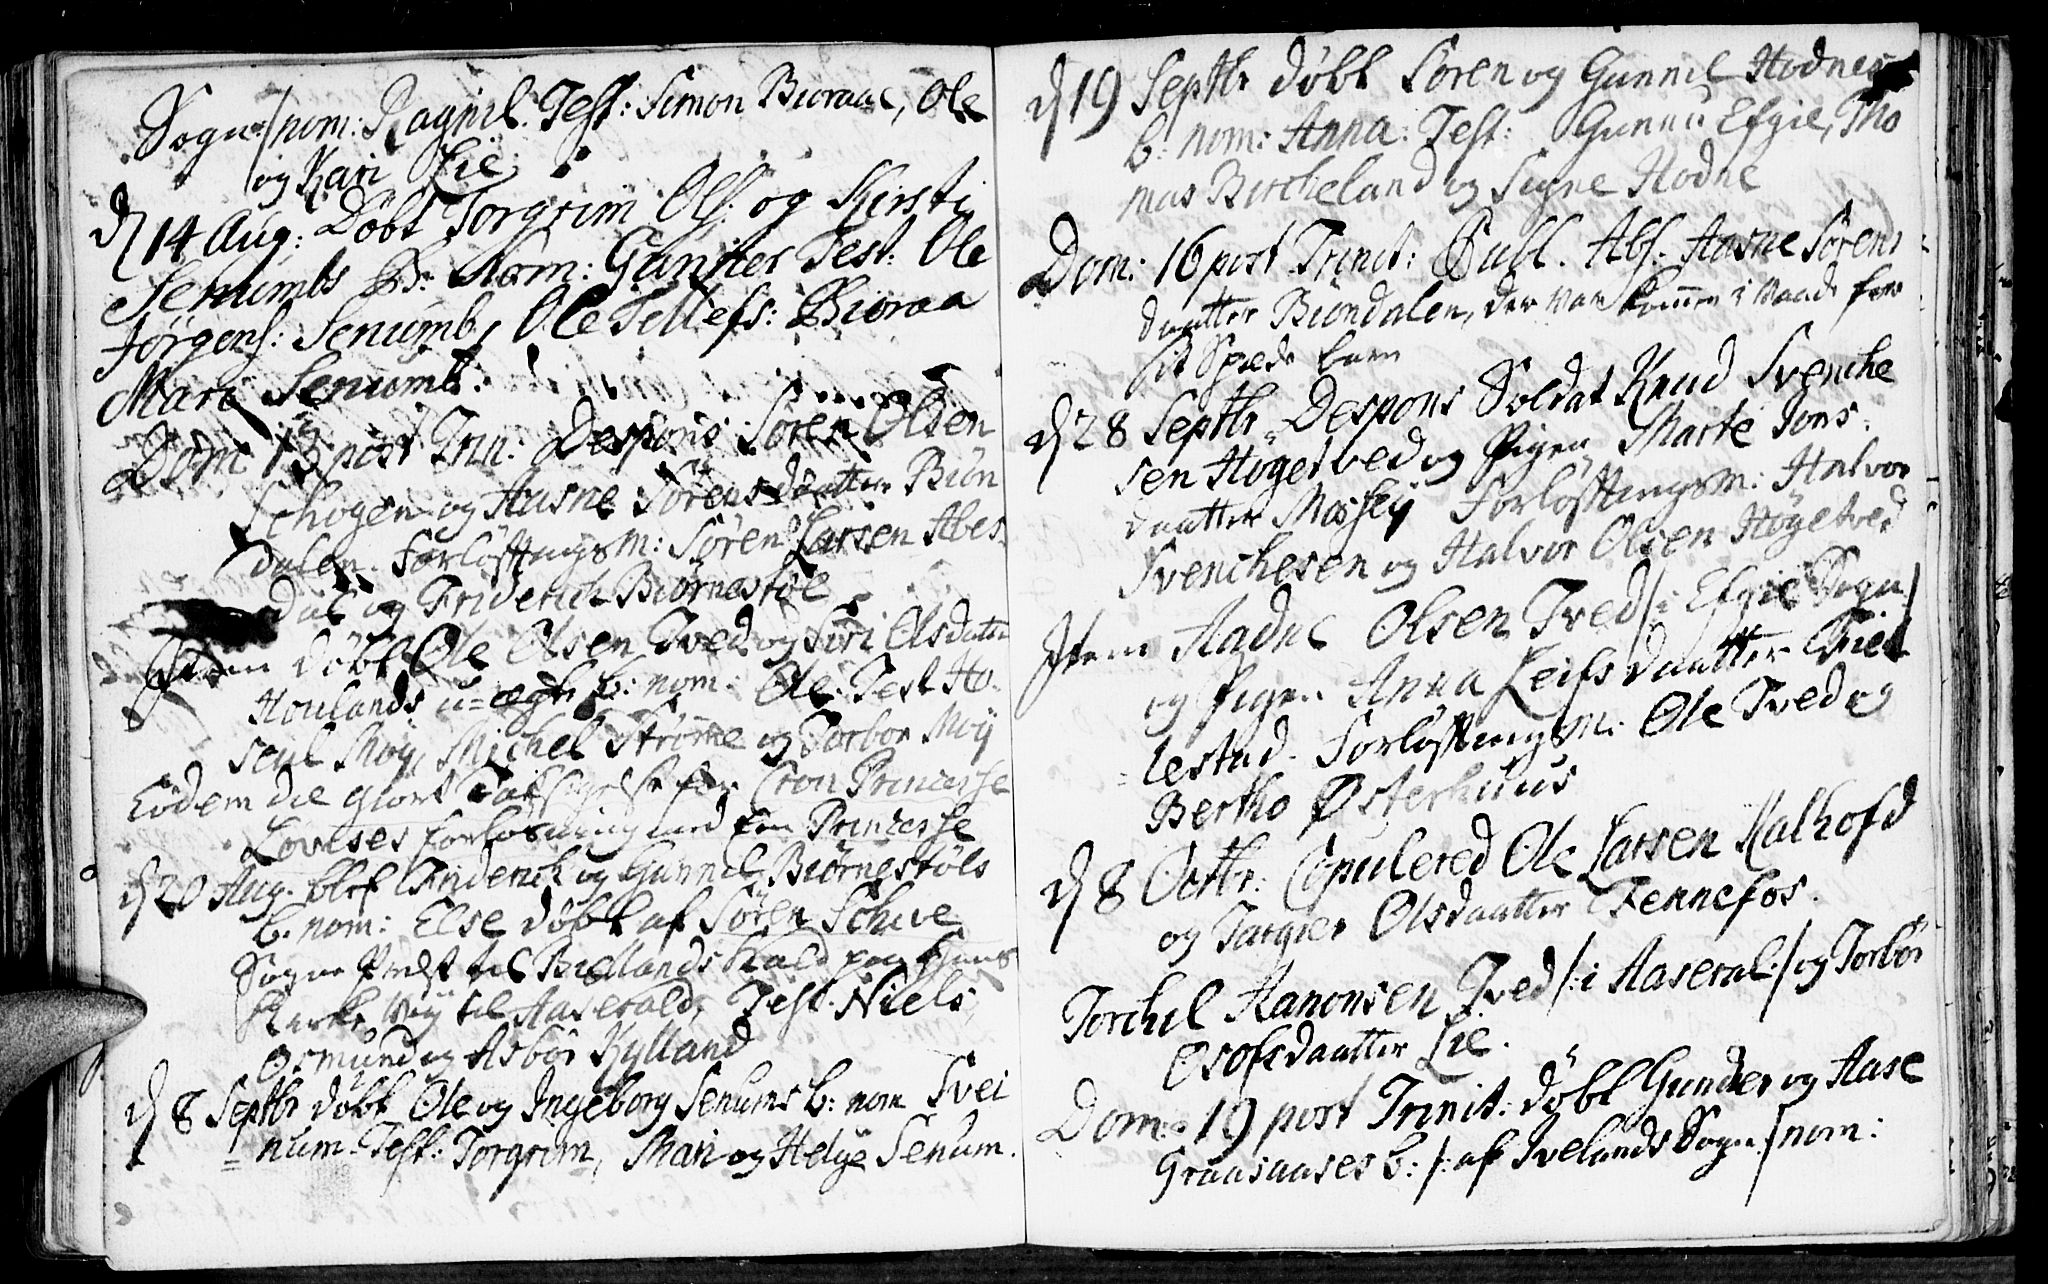 Sogn/ nom: Ragnil. Test: Simon Bioraae, Ole
og Kari Lie
d 14 Aug: Døbt Torgrim Ols: og Kirsti
Senumbs B: Nom: Gunther Test: Ole
Jørgens: Senumb, Ole Tellefs: Bioraa
Mari Senumb.
Dom 13 post Trin: Despons: Søren Olsen
Schogen og Aasne Sørensdaatter Biön
dalen. Forlöftningsm: Sören Larsen Abes
dal og Friderich Biörnestöle
Item döbt Ole Olsen Tved og Siri Olsdatter
Houlands u-ægte b: nom: Ole. Test Ho
seul Moy, Michel Strömme og Torbor Moÿ
Eodem die giort Taksigelse for Cron Princesse
Lovises forlösning med en Princesse
d 20 Aug. blef Friderich og Gunnil Biörnestöls
b. nom: Else døbt af Sören Schive
Sogne Præst til Biellands Kald paa hans
Kirke Veÿ til Aaserald, Test. Niels,
Osmund og Asbör Kylland
d 8 Septbr døbt Ole og Ingeborg Senums b: nom Svei
num. Test: Torgrim, Mari og Helge Senum.
d 19 Septbr døbt Sören og Gunnil Hodnes
b: nom: Anna: Test: Gunnu Efgie, Tho
mas Bircheland og Signe Hodne
Dom: 16 post Trinit: Publ. Abs. Aasne Sörens
daatter Biöndalen, der var kommen i Vaade for
sit Spæde barn
d 28 Septbr Despons Soldat Knud Svenche
sen Högetved og Pigen Marte Jons:
daatter Mosseÿ Forlöftningsm: Halvor
Svenchesen og Halvor Olsen Högetved
Item Aadne Olsen Tved /: i Efgie Sogn /
og Pigen Anna Leifsdaatter Fiel
lestad. Forlöftningsm: Ole Tved og
Bertho Østerhuus
d 8 Octbr: Copulered Ole Larsen Kalhofd
og Targier Olsdaatter Fennefos.
Torchil Aanonsen Tved /: i Aaseral:/ og Torbör
Osofsdaatter Lie.
Dom: 19 post Trinit: döbt Gunder og Aase
Graasaases b: /: af Ivelands Sogn:/ nom: